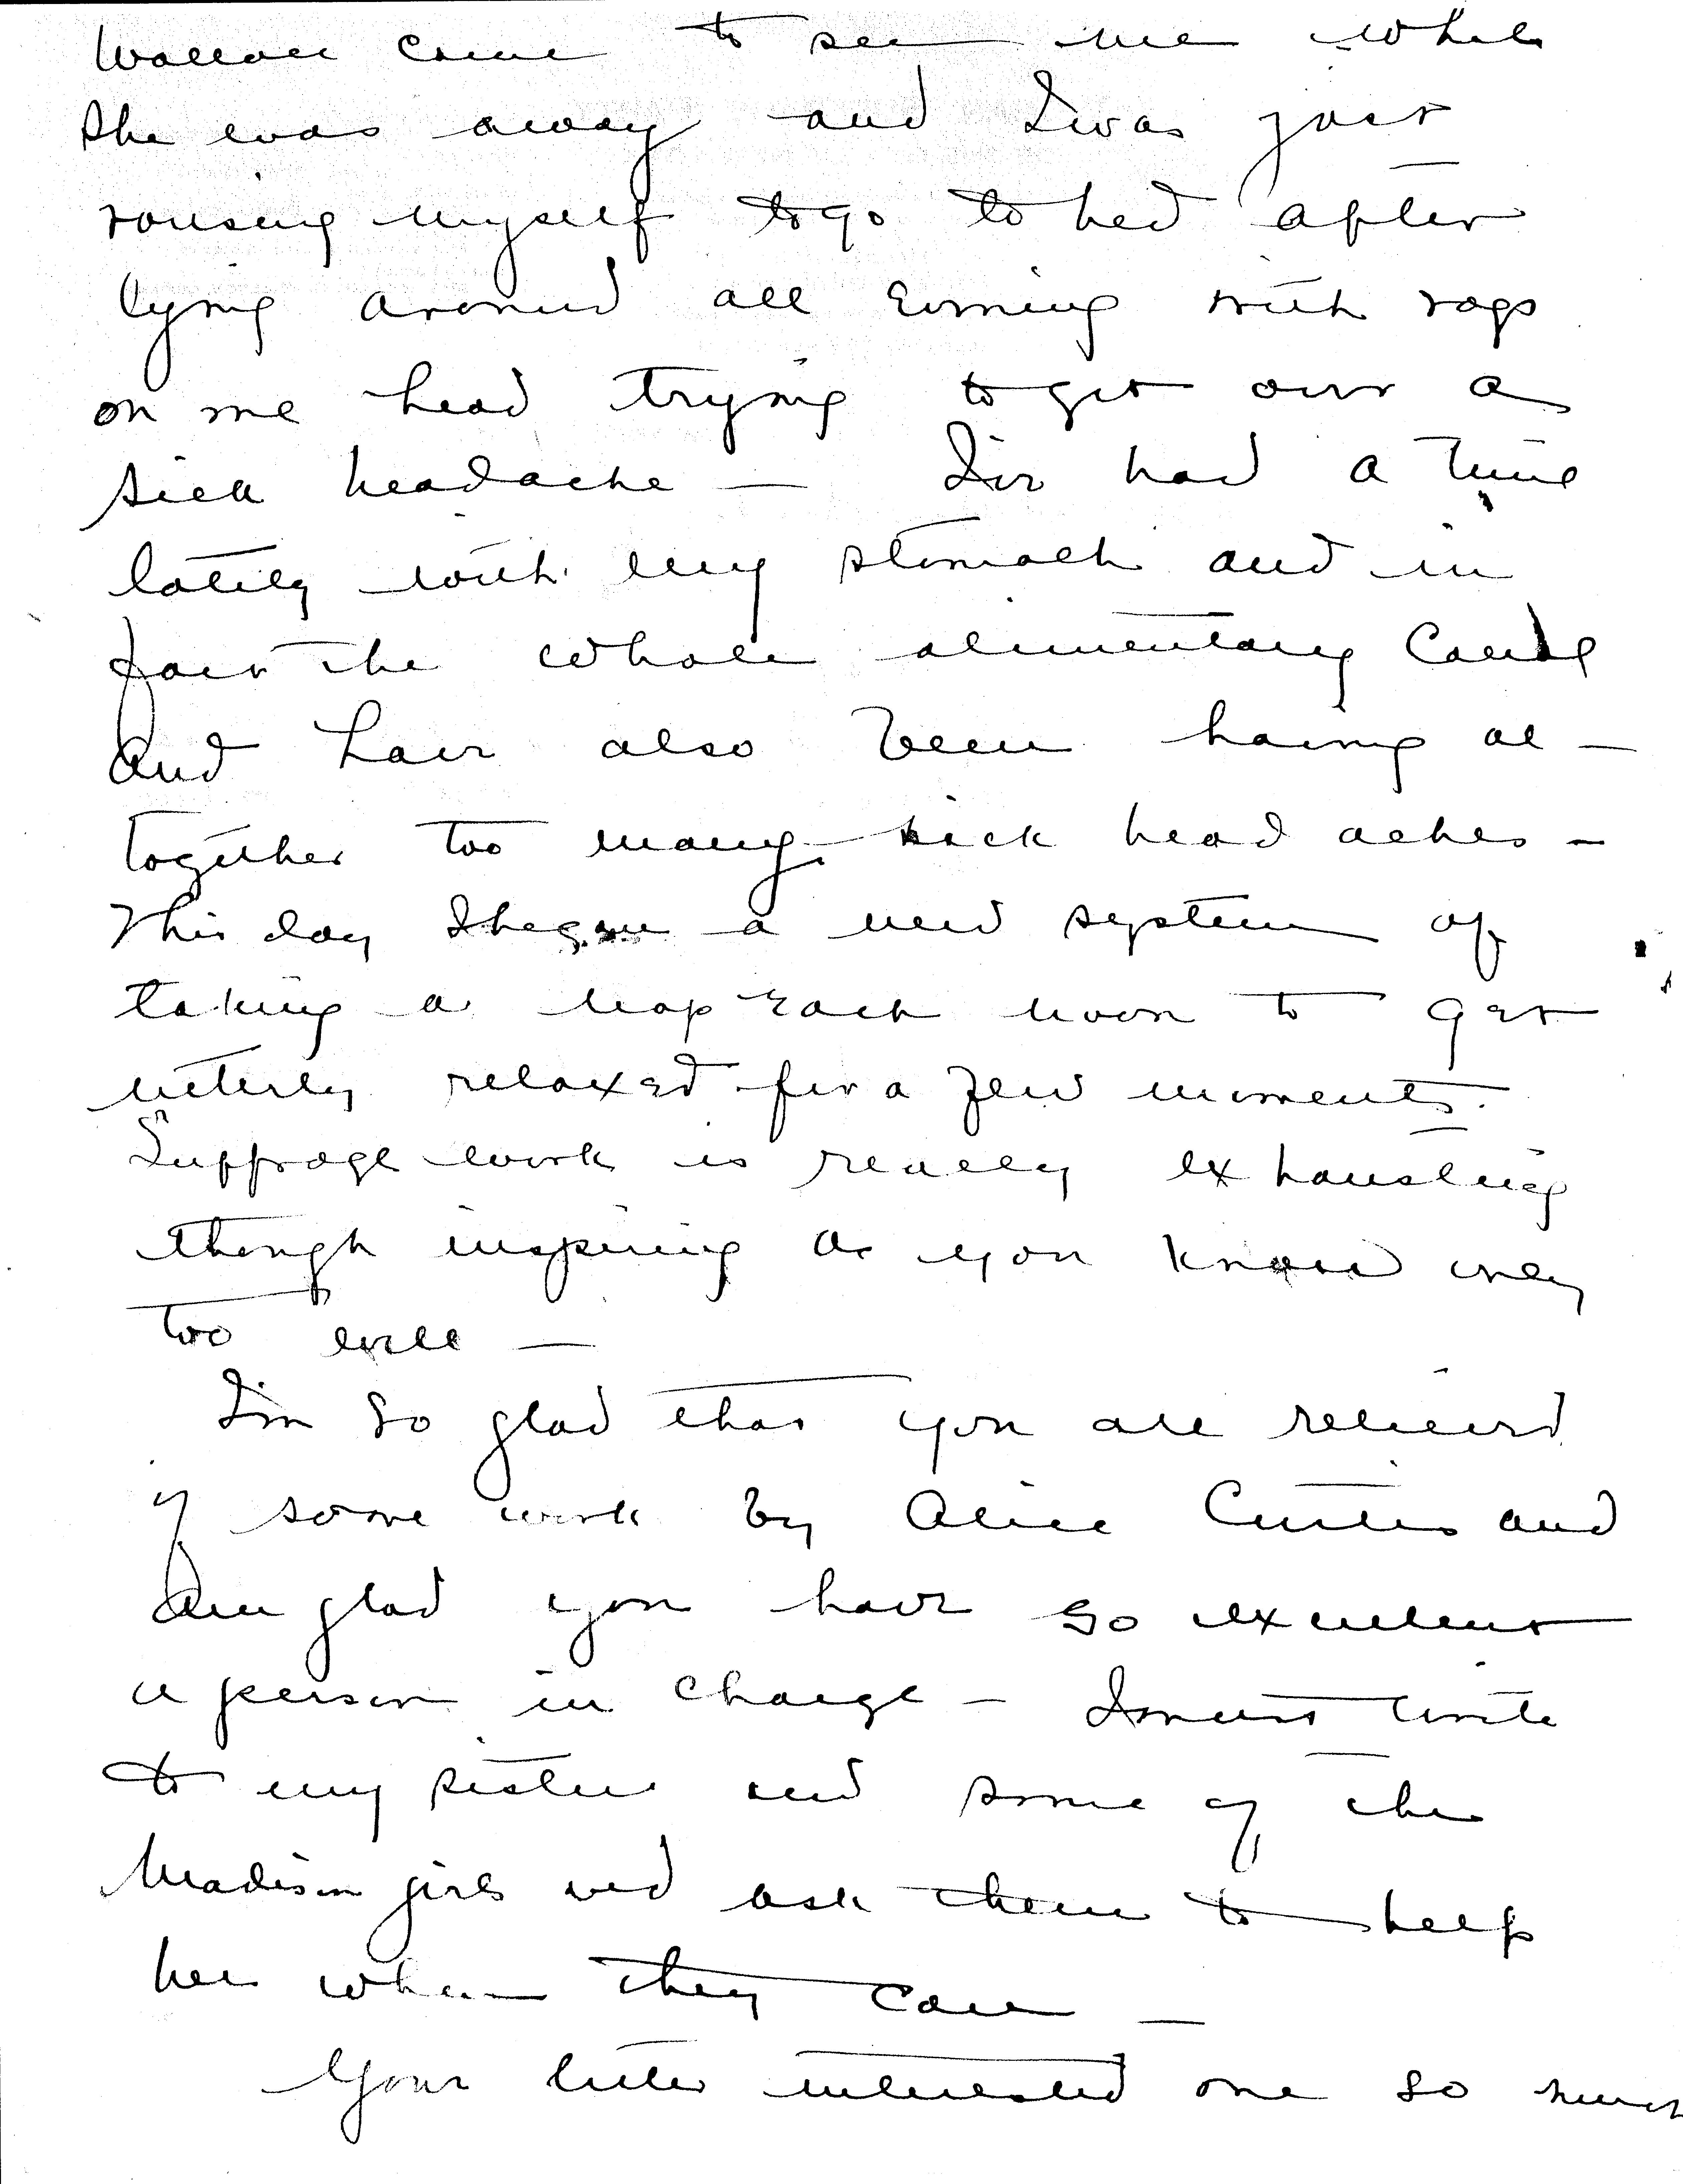 Wallace came to see me while
she was away and I was just
rousing myself to go to bed after
lying around all evening with rags
on me head trying to get over a
sick headache — I've had a time
lately with my stomach and in
fact the whole alimentary canal
and have also been having al-
together too many sick head aches -
This day I began a new system of
taking a nap each noon to get
utterly relaxed for a few moments.
Suffrage work is really exhausting
though inspiring as you know only
too well —
I'm so glad that you are relieved
of some work by Alice Curtis and
am glad you have so excellent
a person in charge - I must write
to my sister and some of the
Madison girls and ask them to help
her when they can —
Your letter interested me so much